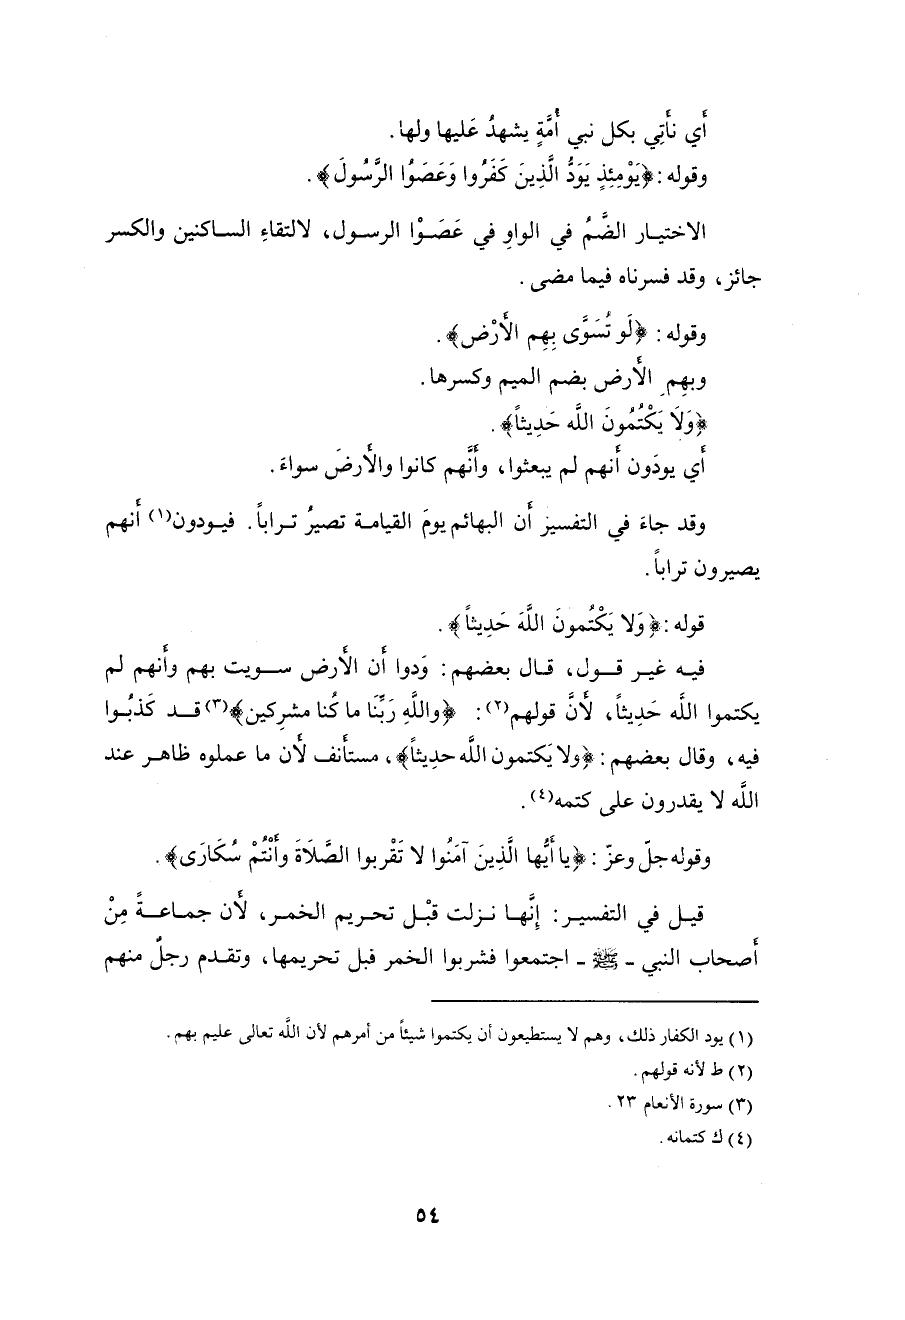 أَي نأَتِي بكل نبي أُمَّةٍ يشهدُ عَليها ولها.
وقوله: ﴿يَوْمِئِذٍ يَوَدُّ الَّذِينَ كَفَرُوا وَعَصَوُا الرَّسُولَ﴾.
الاختيـار الضَّمُ في الواوِ في عَصَـوْا الرسـول، لالتقاءِ السـاكنين والكسر
جائز، وقد فسرناه فيما مضى.
وقوله: ﴿لَو تُسَوَّى بِهِم الأَرْض﴾.
وبِهِم الأَرض بضم الميم وكسرها.
﴿وَلَا يَكْتُمُونَ اللَّه حَدِيثاً﴾.
أَي يودَون أَنهم لم يبعثوا، وأَنَّهم كانوا والأَرضَ سواءَ.
وقد جاءَ في التفسير أَن البهائم يومَ القيامـة تصيرُ تـراباً. فيـودون(١) أَنهم
يصيرون تراباً.
قوله: ﴿وَلا يَكْتُمونَ اللَّهَ حَدِيثاً﴾.
فيـه غيـر قـول، قـال بعضهم: وَدوا أَن الأَرض سـويت بهم وأَنهم لم
يكتموا اللَّه حَدِيثاً، لأَنَّ قولهم(٢): ﴿واللَّهِ رَبِّنَا ما كُنا مشرِكين﴾(٣) قـد كَذبُـوا
فيه، وقال بعضهم: ﴿ولا يَكتمون اللَّه حديثاً﴾، مستأنف لأَن ما عملوه ظاهـر عند
اللَّه لا يقدرون على كتمه(٤).
وقوله جلّ وعزّ: ﴿يا أَيُّها الَّذِينَ آمَنُوا لا تَقْربوا الصَّلَاةَ وأَنْتُمْ سُكَارَى﴾.
قيـل في التفسيـر: إِنَّهـا نـزلت قبْـل تحريـم الخمـر، لأَن جمـاعـةً مِنْ
أَصحاب النبي - ﷺ - اجتمعوا فشربوا الخمر قبل تحريمها، وتقدم رجلٌ منهم
(١) يود الكفار ذلك، وهم لا يستطيعون أن يكتموا شيئاً من أمرهم لأن اللَّه تعالى عليم بهم.
(٢) ط لأنه قولهم.
(٣) سورة الأنعام ٢٣.
(٤) ك كتمانه.
٥٤